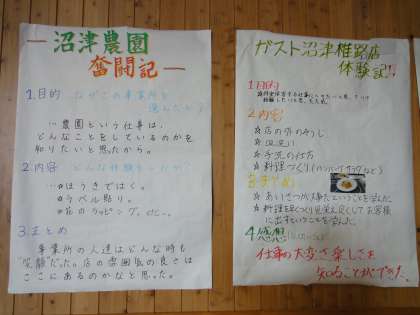 沼津農園
奮闘記
1.目的 なぜこの事業所を
選んだか?
…農園という仕事は、
どんなことをしているのかを
知りたいと思ったから。
2.内容 どんな体験をしたか?
…ほうきではく。
ラベル貼り。
花のラッピング。etc…
3.まとめ
事業所の人達はどんな時も
"笑顔"だった。店の雰囲気の良さは
ここにあるのかなと思った。
ガスト沼津椎路店
体験記!!
1.目的
2.内容
☆店の外のそうじ
☆皿洗い
☆手洗の仕方
☆料理づくり(ハンバーグ サラダなど)
3.まとめ
☆あいさつが大事だということを学んだ
☆料理を早くつくり見栄え良くしてお客様
に出すということを学んだ。
4.感想
仕事の大変さ楽しさを
知ることができた。